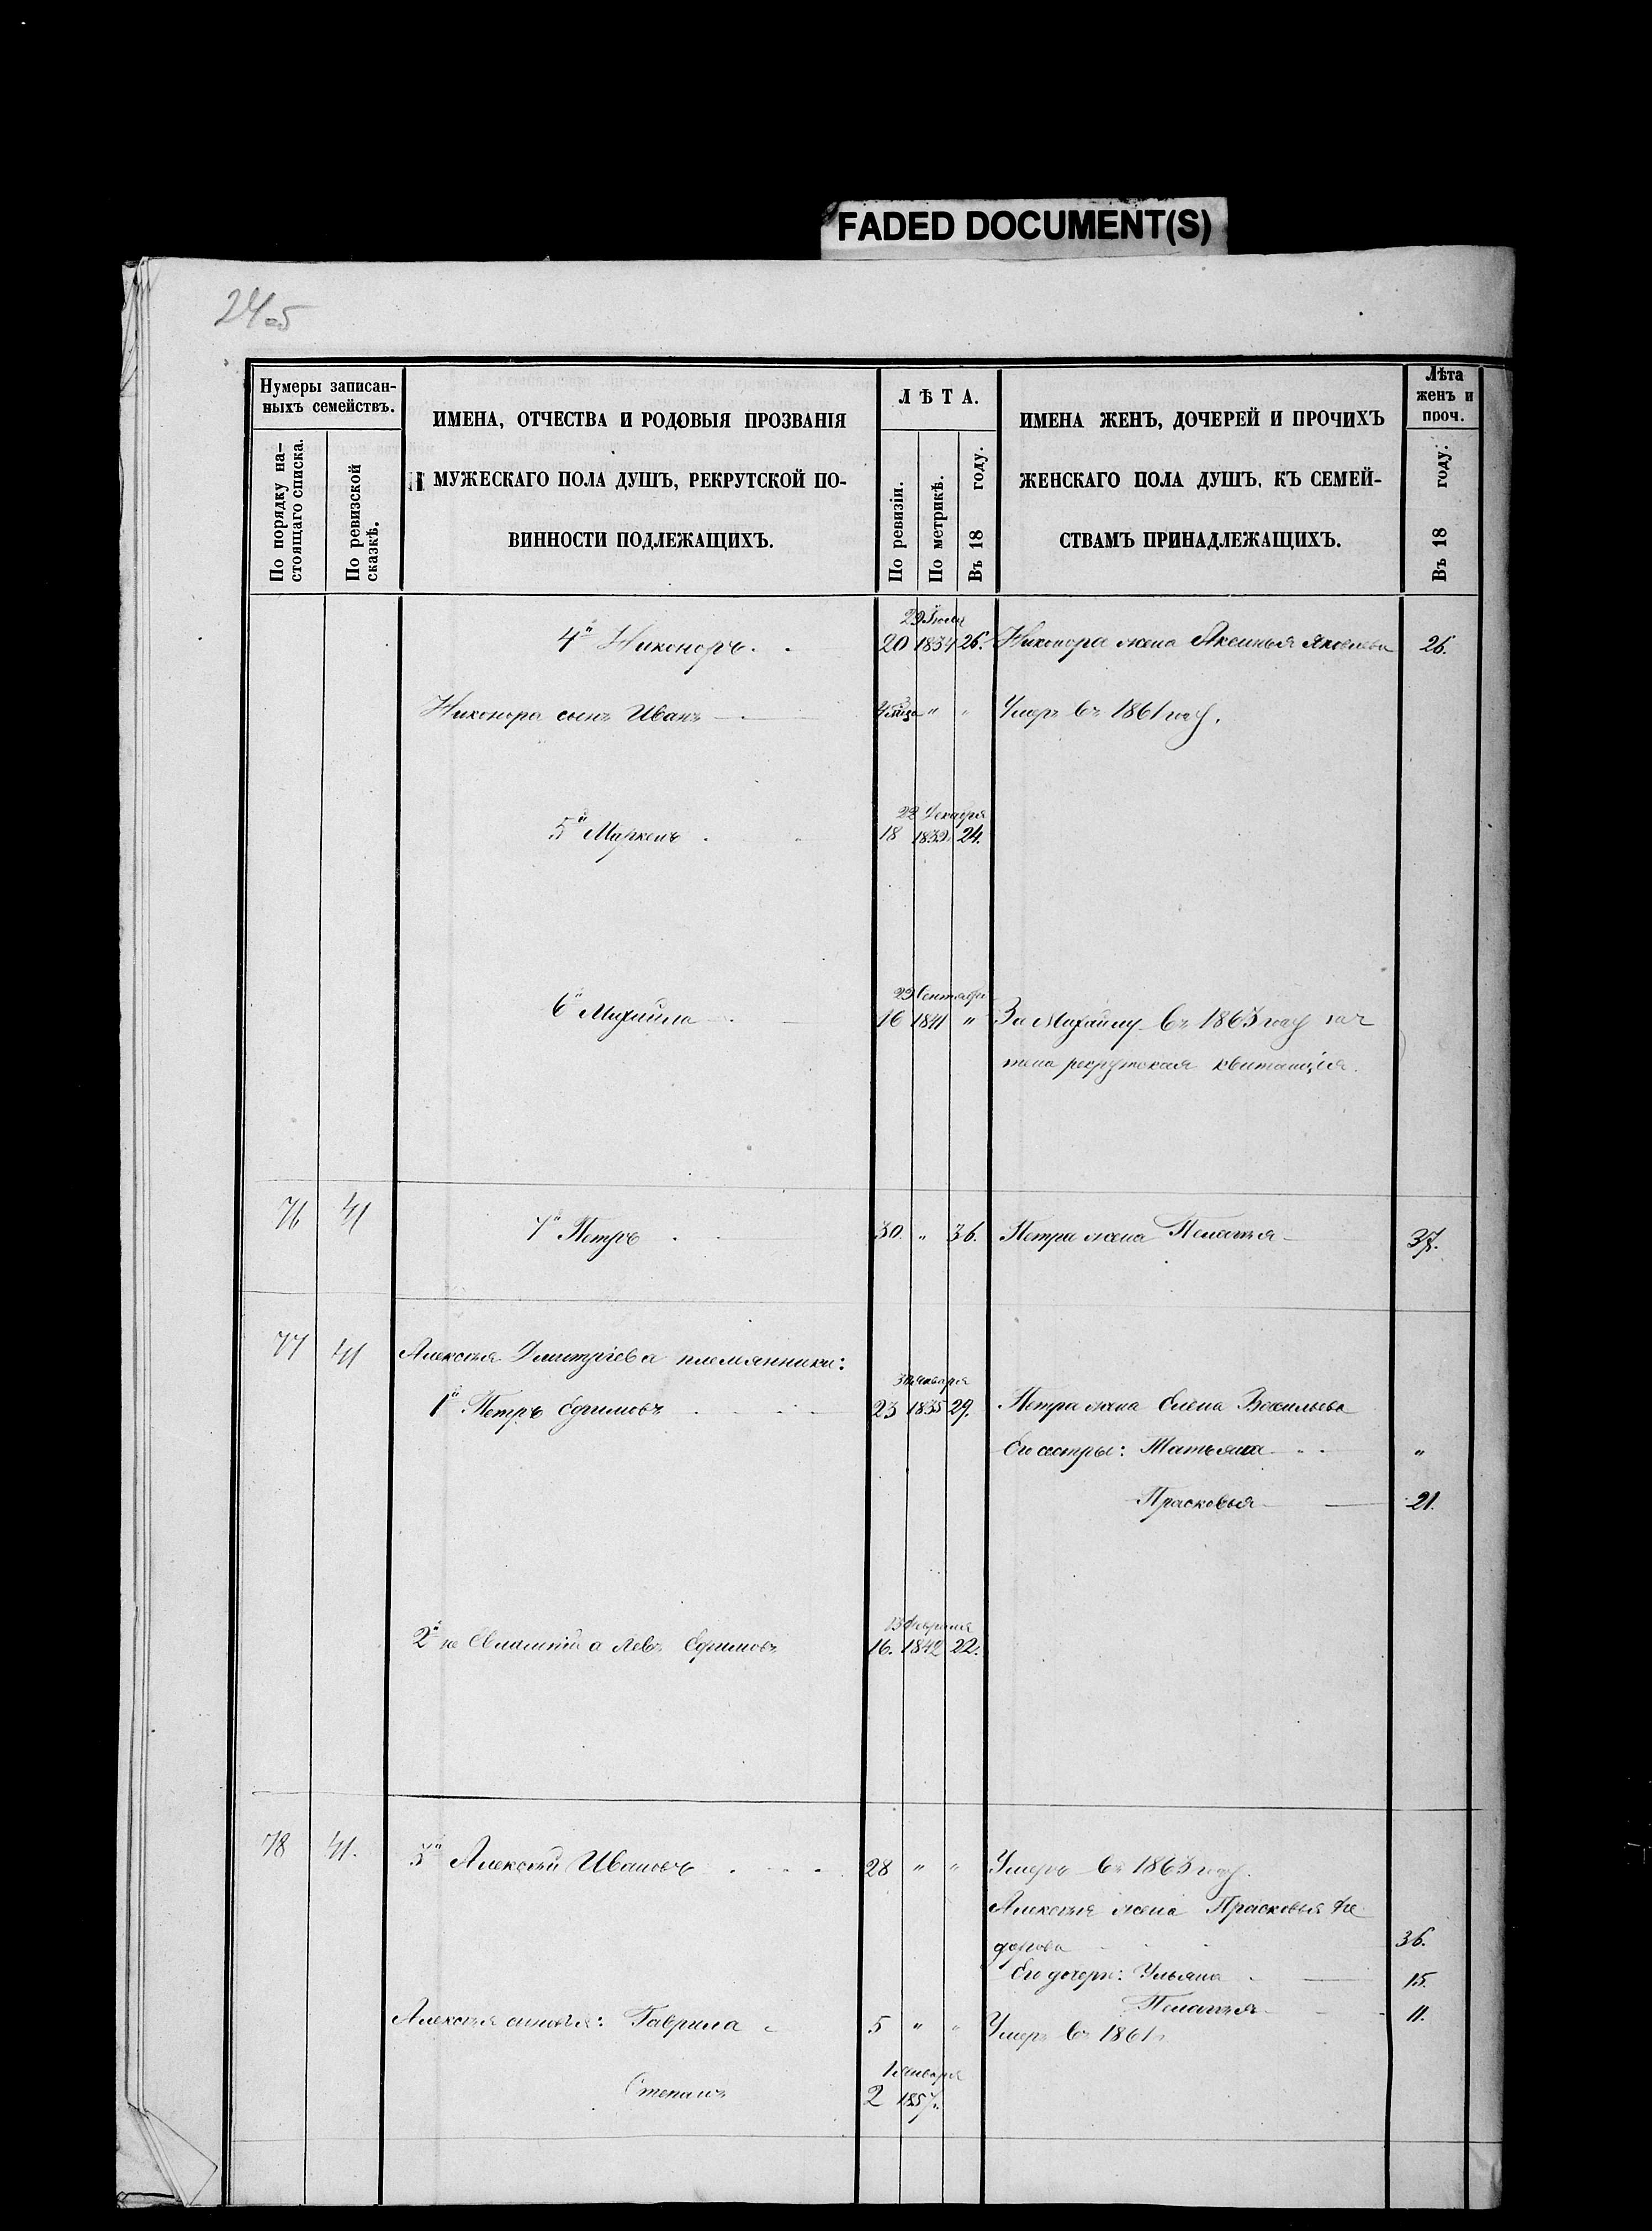 FADED DOCUMENT(S)
24 об
Нумеры записан-
ныхъ семействъ.
По порядку на-
стоящаго списка.
По ревизской
сказкѣ.
ИМЕНА, ОТЧЕСТВА И РОДОВЫЯ ПРОЗВАНІЯ
МУЖЕСКАГО ПОЛА ДУШЪ, РЕКРУТСКОЙ ПО-
ВИННОСТИ ПОДЛЕЖАЩИХЪ.
ЛѢТА.
По ревизіи.
По метрикѣ.
Въ 18 году.
ИМЕНА ЖЕНЪ, ДОЧЕРЕЙ И ПРОЧИХЪ
ЖЕНСКАГО ПОЛА ДУШЪ, КЪ СЕМЕЙ-
СТВАМЪ ПРИНАДЛЕЖАЩИХЪ.
Лѣта
женъ и
проч.
Въ 18 году.
29
4й Никоноръ. . 20 1834 26. Никонора жена Аксинья Яковлева 26.
Никонора сынъ Иванъ " " Умеръ въ 1861 году.
22 Декабря
5й . 18 1839 24.
29 Сентября
6й Михайла 16 1841 " За Михайлу въ 1863 году зач
тена рекрутская квитанція.
76 41 7й Петръ . 30. " 36. Петра жена Пелагея 37.
77 41 Алексѣя Дмитріева племянники:
30 Января
1й Петръ Ефимовъ 23 1835 29. Петра жена Елена Васильева
Его сестры: Татьяна "
Прасковья 21.
13 Февраля
2й Левъ Ефимовъ 16. 1842 22.
78 41. 3й Алексѣй Ивановъ . . . 28 " " Умеръ въ 1863 году.
Алексѣя жена Прасковья Фе
дорова 36.
Его дочери: Ульяна 15.
Пелагея 11.
Алексѣя сыновья: Гаврила 5 " " Умеръ въ 1861 г.
1 Января
Степанъ 2 1857.